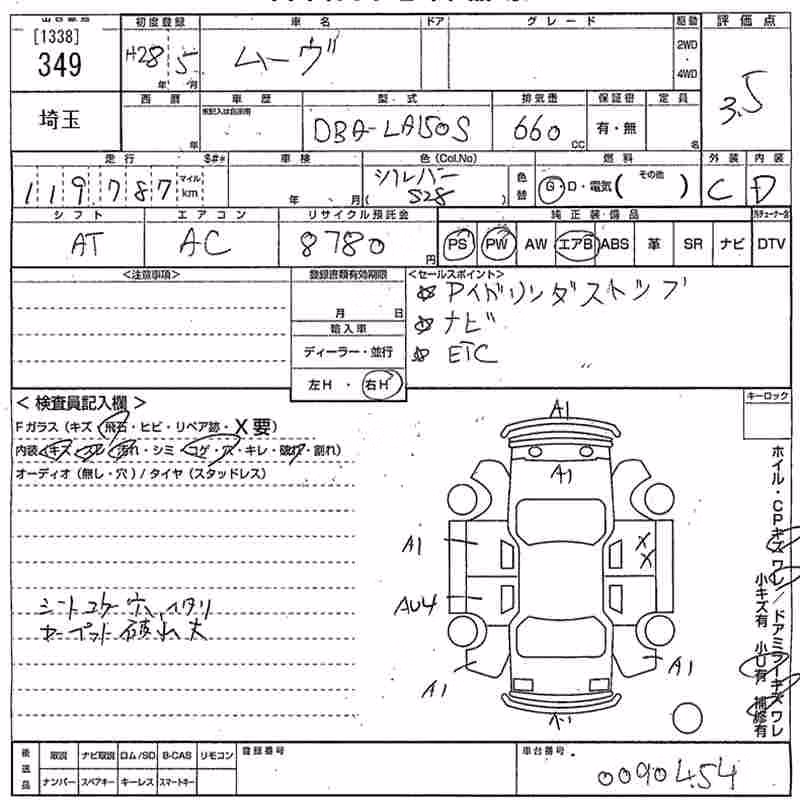 [1338]
349
埼玉
初度登録
H28 年 5 月
車名
ムーヴ
ドア
グレード
駆動
2WD
・
4WD
評価点
3.5
西暦
年
車歴
型・式
DBA-LA150S
排気量
660 CC
保証書
有・無
定員
名
走行
119787
マイル
km
S#*
車検
年 月
色(Col.No)
シルバー
( S28 )
色替
燃料
G・D・電気( その他 )
外装
C
内装
D
シフト
AT
エアコン
AC
リサイクル預託金
8780 円
純正装備品
PS PW AW エアB ABS 革 SR ナビ DTV
<注意事項>
登録書類有効期限
月 日
輸入車
ディーラー・並行
左H・右H
<セールスポイント>
☆ アイドリングストップ
☆ ナビ
☆ ETC
<検査員記入欄>
Fガラス(キズ・飛石・ヒビ・リペア跡・X要)
内装(キズ・スレ・汚れ・シミ・コゲ・穴・キレ・破れ・割れ)
オーディオ(無し・穴)/タイヤ(スタッドレス)
シートコゲ穴、ヘタリ
カーペット破れ大
キーロック
A1
A1
A1
XX
AU4
A1
A1
ホイル・CPキズワレ/ドアミラーキズワレ
小キズ有 小U有 補修有
後送品
取説 ナビ取説 ロム/SD B-CAS リモコン
ナンバー スペアキー キーレス スマートキー
登録番号
車台番号
0090454